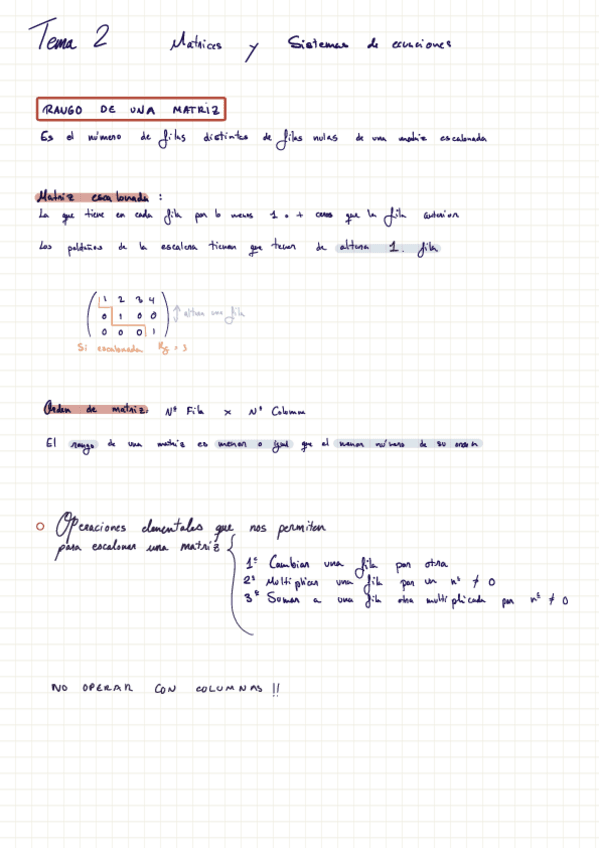 Tema 2 Matrices y Sistemas de ecuaciones
RANGO DE UNA MATRIZ
Es el número de filas distintas de filas nulas de una matriz escalonada
Matriz escalonada :
La que tiene en cada fila por lo menos 1 o + ceros que la fila anterior
Los peldaños de la escalera tienen que tener de altura 1. fila
1 2 3 4
0 1 0 0 altura una fila
0 0 0 1
Si escalonada Rg = 3
Orden de matriz: Nº Fila x Nº Columna
El rango de una matriz es menor o igual que el menor número de su orden
Operaciones elementales que nos permiten
para escalonar una matriz
1º Cambiar una fila por otra
2º Multiplicar una fila por un nº ≠ 0
3º Sumar a una fila otra multiplicada por nº ≠ 0
NO OPERAR CON COLUMNAS !!